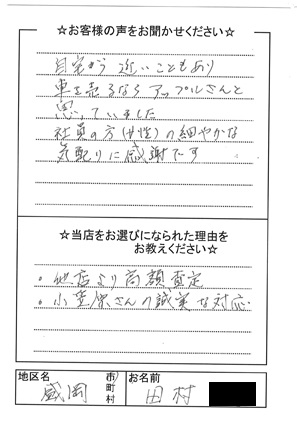 ☆お客様の声をお聞かせください☆
自宅から近いこともあり
車を売るならアップルさんと
思っていました
社員の方(女性)の細やかな
気配りに感謝です
☆当店をお選びになられた理由を
お教えください☆
・他店より高額査定
・小笠原さんの誠実な対応
地区名 盛岡 市/町村 お名前 田村